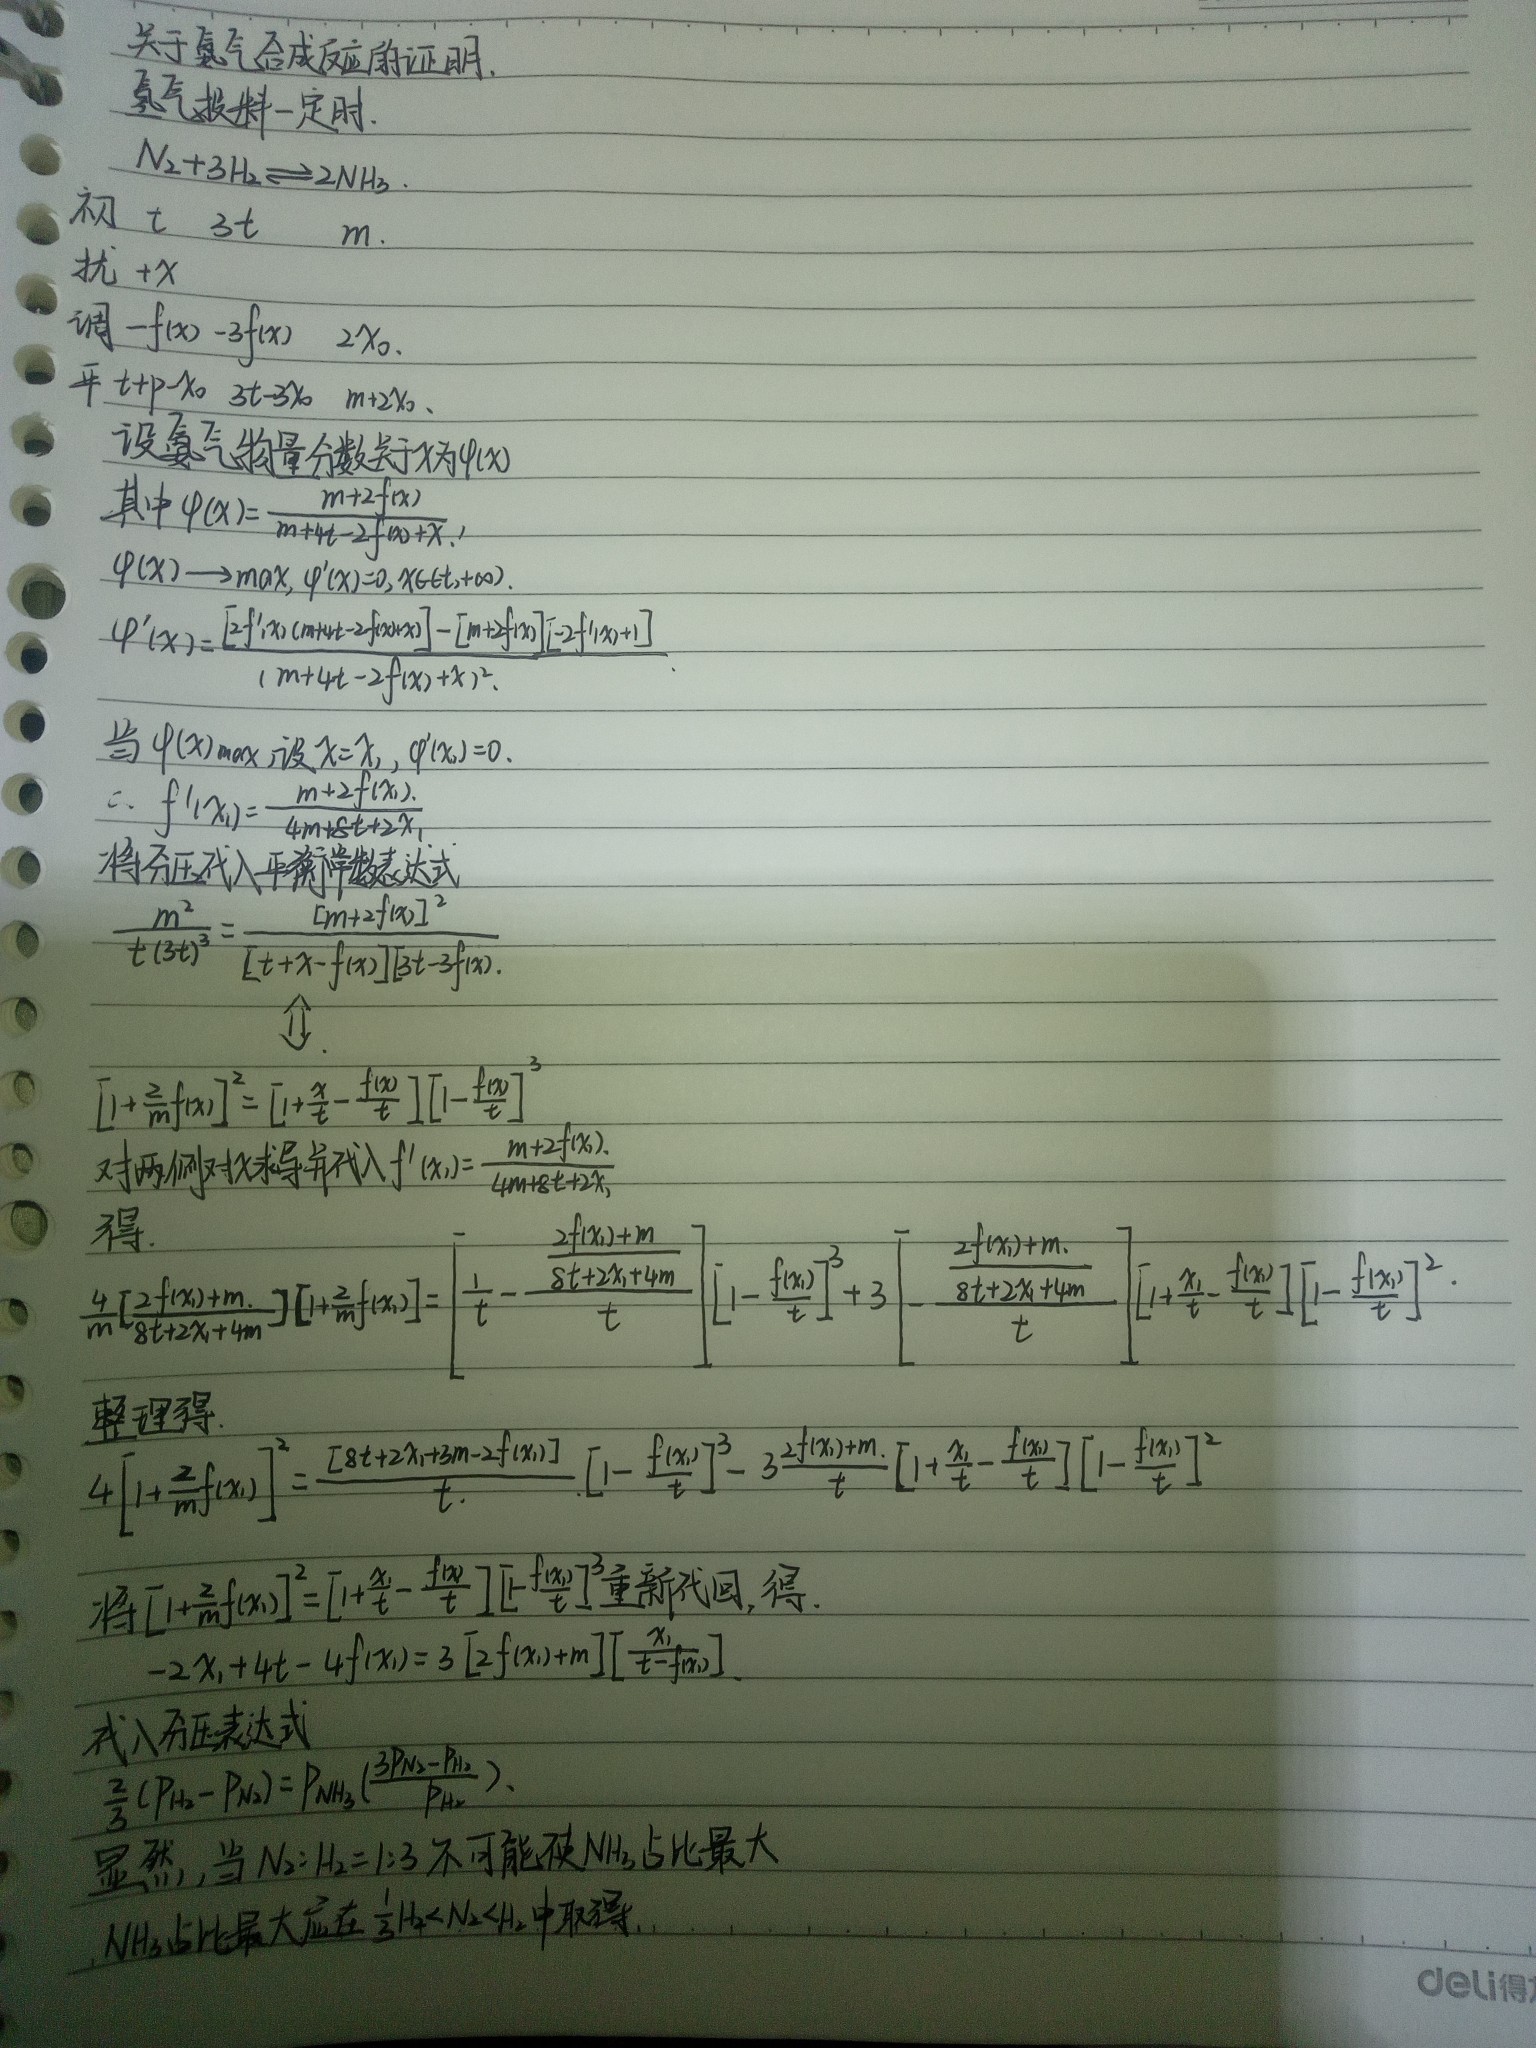 关于氨气合成反应的证明.
氢气投料一定时.
N₂+3H₂⇌2NH₃.
初 t 3t m.
扰 +x
调 -f(x) -3f(x) 2x₀.
平 t+p-x₀ 3t-3x₀ m+2x₀.
设氨气物量分数关于x为φ(x)
其中φ(x)=\frac{m+2f(x)}{m+4t-2f(x)+x.}
φ(x)→max, φ'(x)=0, x∈(-t,+∞).
φ'(x)=\frac{[2f'(x)(m+4t-2f(x)+x)]-[m+2f(x)][-2f'(x)+1]}{(m+4t-2f(x)+x)².}
当φ(x)max,设x=x₁, φ'(x₁)=0.
∴ f'(x₁)=\frac{m+2f(x₁).}{4m+8t+2x₁}
将分压代入平衡常数表达式
\frac{m²}{t(3t)³}=\frac{[m+2f(x)]²}{[t+x-f(x)][3t-3f(x).}
⇕.
[1+\frac{2}{m}f(x)]²=[1+\frac{x}{t}-\frac{f(x)}{t}][1-\frac{f(x)}{t}]³
对两侧对x求导并代入f'(x₁)=\frac{m+2f(x₁).}{4m+8t+2x₁}
得.
\frac{4}{m}[\frac{2f(x₁)+m.}{8t+2x₁+4m}][1+\frac{2}{m}f(x₁)]=[\frac{1}{t}-\frac{\frac{2f(x₁)+m}{8t+2x₁+4m}}{t}][1-\frac{f(x₁)}{t}]³+3[-\frac{\frac{2f(x₁)+m.}{8t+2x₁+4m}}{t}][1+\frac{x₁}{t}-\frac{f(x₁)}{t}][1-\frac{f(x₁)}{t}]².
整理得.
4[1+\frac{2}{m}f(x₁)]²=\frac{[8t+2x₁+3m-2f(x₁)]}{t.}[1-\frac{f(x₁)}{t}]³-3\frac{2f(x₁)+m.}{t}[1+\frac{x₁}{t}-\frac{f(x₁)}{t}][1-\frac{f(x₁)}{t}]²
将[1+\frac{2}{m}f(x₁)]²=[1+\frac{x₁}{t}-\frac{f(x)}{t}][1-\frac{f(x₁)}{t}]³重新代回,得.
-2x₁+4t-4f(x₁)=3[2f(x₁)+m][\frac{x₁}{t-f(x₁)}].
代入分压表达式
\frac{2}{3}(P_{H₂}-P_{N₂})=P_{NH₃}(\frac{3P_{N₂}-P_{H₂}}{P_{H₂}}).
显然,当N₂:H₂=1:3不可能使NH₃占比最大
NH₃占比最大应在\frac{1}{3}H₂<N₂<H₂中取得.
deli得